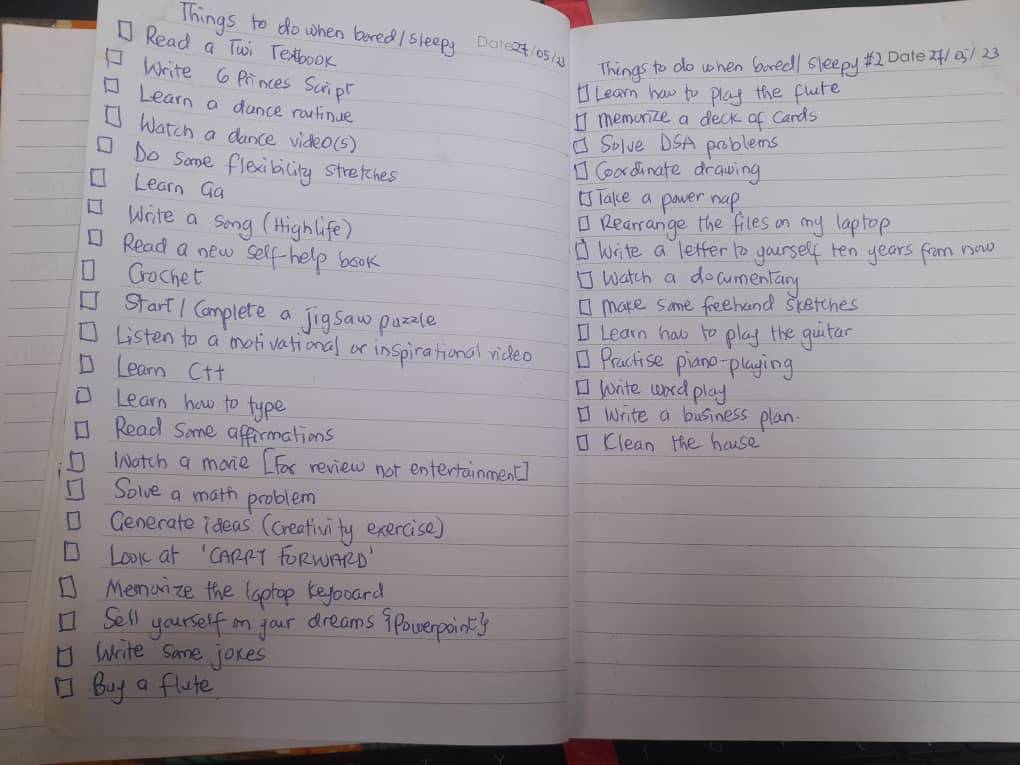 Things to do when bored/sleepy Date 27/05/23
☐ Read a Twi Textbook
☐ Write 6 Princes Script
☐ Learn a dance routinue
☐ Watch a dance video(s)
☐ Do some flexibility stretches
☐ Learn Ga
☐ Write a song (Highlife)
☐ Read a new self-help book
☐ Crochet
☐ Start/Complete a jigsaw puzzle
☐ Listen to a motivational or inspirational video
☐ Learn C++
☐ Learn how to type
☐ Read some affirmations
☐ Watch a movie [For review not entertainment]
☐ Solve a math problem
☐ Generate ideas (creativity exercise)
☐ Look at 'CARRY FORWARD'
☐ Memorize the laptop keyboard
☐ Sell yourself on your dreams {Powerpoint}
☐ Write some jokes
☐ Buy a flute
Things to do when bored/sleepy #2 Date 27/05/23
☐ Learn how to play the flute
☐ Memorize a deck of cards
☐ Solve DSA problems
☐ Coordinate drawing
☐ Take a power nap
☐ Rearrange the files on my laptop
☐ Write a letter to yourself ten years from now
☐ Watch a documentary
☐ Make some freehand sketches
☐ Learn how to play the guitar
☐ Practise piano-playing
☐ Write word play
☐ Write a business plan.
☐ Clean the house